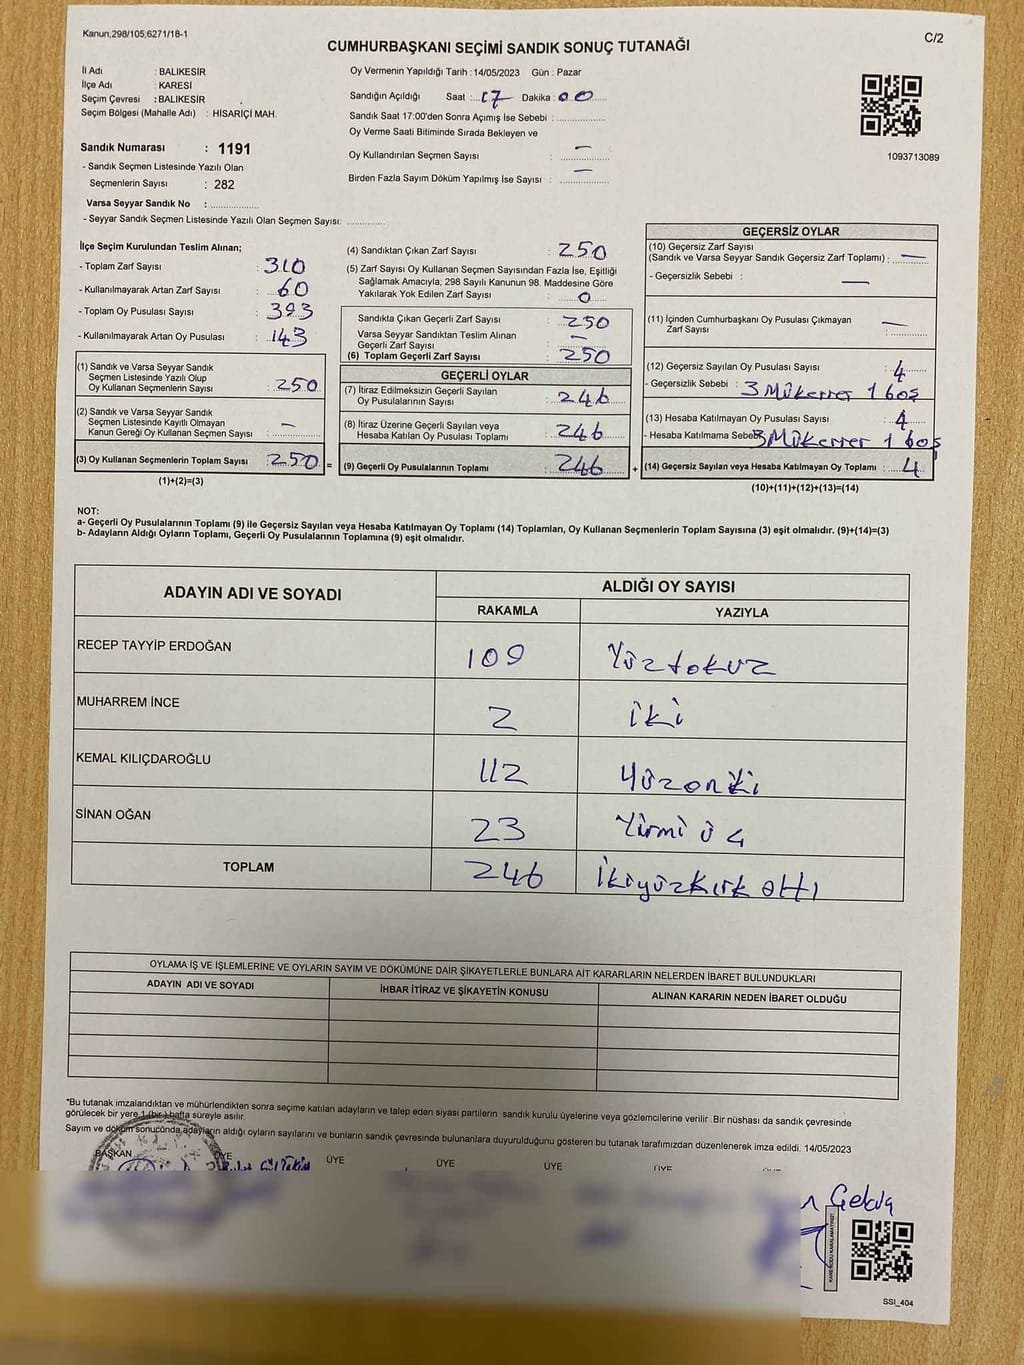 Kanun;298/105,6271/18-1
C/2
CUMHURBAŞKANI SEÇİMİ SANDIK SONUÇ TUTANAĞI
İl Adı : BALIKESİR
İlçe Adı : KARESİ
Seçim Çevresi : BALIKESİR
Seçim Bölgesi (Mahalle Adı) : HİSARİÇİ MAH.
Sandık Numarası : 1191
- Sandık Seçmen Listesinde Yazılı Olan
Seçmenlerin Sayısı : 282
Varsa Seyyar Sandık No :
- Seyyar Sandık Seçmen Listesinde Yazılı Olan Seçmen Sayısı:
Oy Vermenin Yapıldığı Tarih : 14/05/2023 Gün : Pazar
Sandığın Açıldığı Saat : 17 Dakika : 00
Sandık Saat 17:00'den Sonra Açımış İse Sebebi :
Oy Verme Saati Bitiminde Sırada Bekleyen ve
Oy Kullandırılan Seçmen Sayısı : —
Birden Fazla Sayım Döküm Yapılmış İse Sayısı : —
1093713089
İlçe Seçim Kurulundan Teslim Alınan;
- Toplam Zarf Sayısı : 310
- Kullanılmayarak Artan Zarf Sayısı : 60
- Toplam Oy Pusulası Sayısı : 393
- Kullanılmayarak Artan Oy Pusulası : 143
(1) Sandık ve Varsa Seyyar Sandık
Seçmen Listesinde Yazılı Olup
Oy Kullanan Seçmenlerin Sayısı : 250
(2) Sandık ve Varsa Seyyar Sandık
Seçmen Listesinde Kayıtlı Olmayan
Kanun Gereği Oy Kullanan Seçmen Sayısı : —
(3) Oy Kullanan Seçmenlerin Toplam Sayısı : 250
(1)+(2)=(3)
=
(4) Sandıktan Çıkan Zarf Sayısı : 250
(5) Zarf Sayısı Oy Kullanan Seçmen Sayısından Fazla İse, Eşitliği
Sağlamak Amacıyla; 298 Sayılı Kanunun 98. Maddesine Göre
Yakılarak Yok Edilen Zarf Sayısı : 0
Sandıkta Çıkan Geçerli Zarf Sayısı : 250
Varsa Seyyar Sandıktan Teslim Alınan
Geçerli Zarf Sayısı : —
(6) Toplam Geçerli Zarf Sayısı : 250
GEÇERLİ OYLAR
(7) İtiraz Edilmeksizin Geçerli Sayılan
Oy Pusulalarının Sayısı : 246
(8) İtiraz Üzerine Geçerli Sayılan veya
Hesaba Katılan Oy Pusulası Toplamı : 246
(9) Geçerli Oy Pusulalarının Toplamı : 246
+
GEÇERSİZ OYLAR
(10) Geçersiz Zarf Sayısı
(Sandık ve Varsa Seyyar Sandık Geçersiz Zarf Toplamı) : —
- Geçersizlik Sebebi : —
(11) İçinden Cumhurbaşkanı Oy Pusulası Çıkmayan
Zarf Sayısı : —
(12) Geçersiz Sayılan Oy Pusulası Sayısı : 4
- Geçersizlik Sebebi : 3 Mükerrer 1 boş
(13) Hesaba Katılmayan Oy Pusulası Sayısı : 4
- Hesaba Katılmama Sebebi 3 Mükerrer 1 boş
(14) Geçersiz Sayılan veya Hesaba Katılmayan Oy Toplamı : 4
(10)+(11)+(12)+(13)=(14)
NOT:
a- Geçerli Oy Pusulalarının Toplamı (9) ile Geçersiz Sayılan veya Hesaba Katılmayan Oy Toplamı (14) Toplamları, Oy Kullanan Seçmenlerin Toplam Sayısına (3) eşit olmalıdır. (9)+(14)=(3)
b- Adayların Aldığı Oyların Toplamı, Geçerli Oy Pusulalarının Toplamına (9) eşit olmalıdır.
ADAYIN ADI VE SOYADI ALDIĞI OY SAYISI
RAKAMLA YAZIYLA
RECEP TAYYİP ERDOĞAN 109 Yüztokuz
MUHARREM İNCE 2 iki
KEMAL KILIÇDAROĞLU 112 Yüzoniki
SİNAN OĞAN 23 Yirmi üç
TOPLAM 246 İkiyüzkırk altı
OYLAMA İŞ VE İŞLEMLERİNE VE OYLARIN SAYIM VE DÖKÜMÜNE DAİR ŞİKAYETLERLE BUNLARA AİT KARARLARIN NELERDEN İBARET BULUNDUKLARI
ADAYIN ADI VE SOYADI İHBAR İTİRAZ VE ŞİKAYETİN KONUSU ALINAN KARARIN NEDEN İBARET OLDUĞU
*Bu tutanak imzalandıktan ve mühürlendikten sonra seçime katılan adayların ve talep eden siyasi partilerin sandık kurulu üyelerine veya gözlemcilerine verilir .Bir nüshası da sandık çevresinde
görülecek bir yere 1 (bir ) hafta süreyle asılır.
Sayım ve döküm sonucunda adayların aldığı oyların sayılarını ve bunların sandık çevresinde bulunanlara duyurulduğunu gösteren bu tutanak tarafımızdan düzenlenerek imza edildi. 14/05/2023
BAŞKAN ÜYE ÜYE ÜYE ÜYE ÜYE
SSI_404